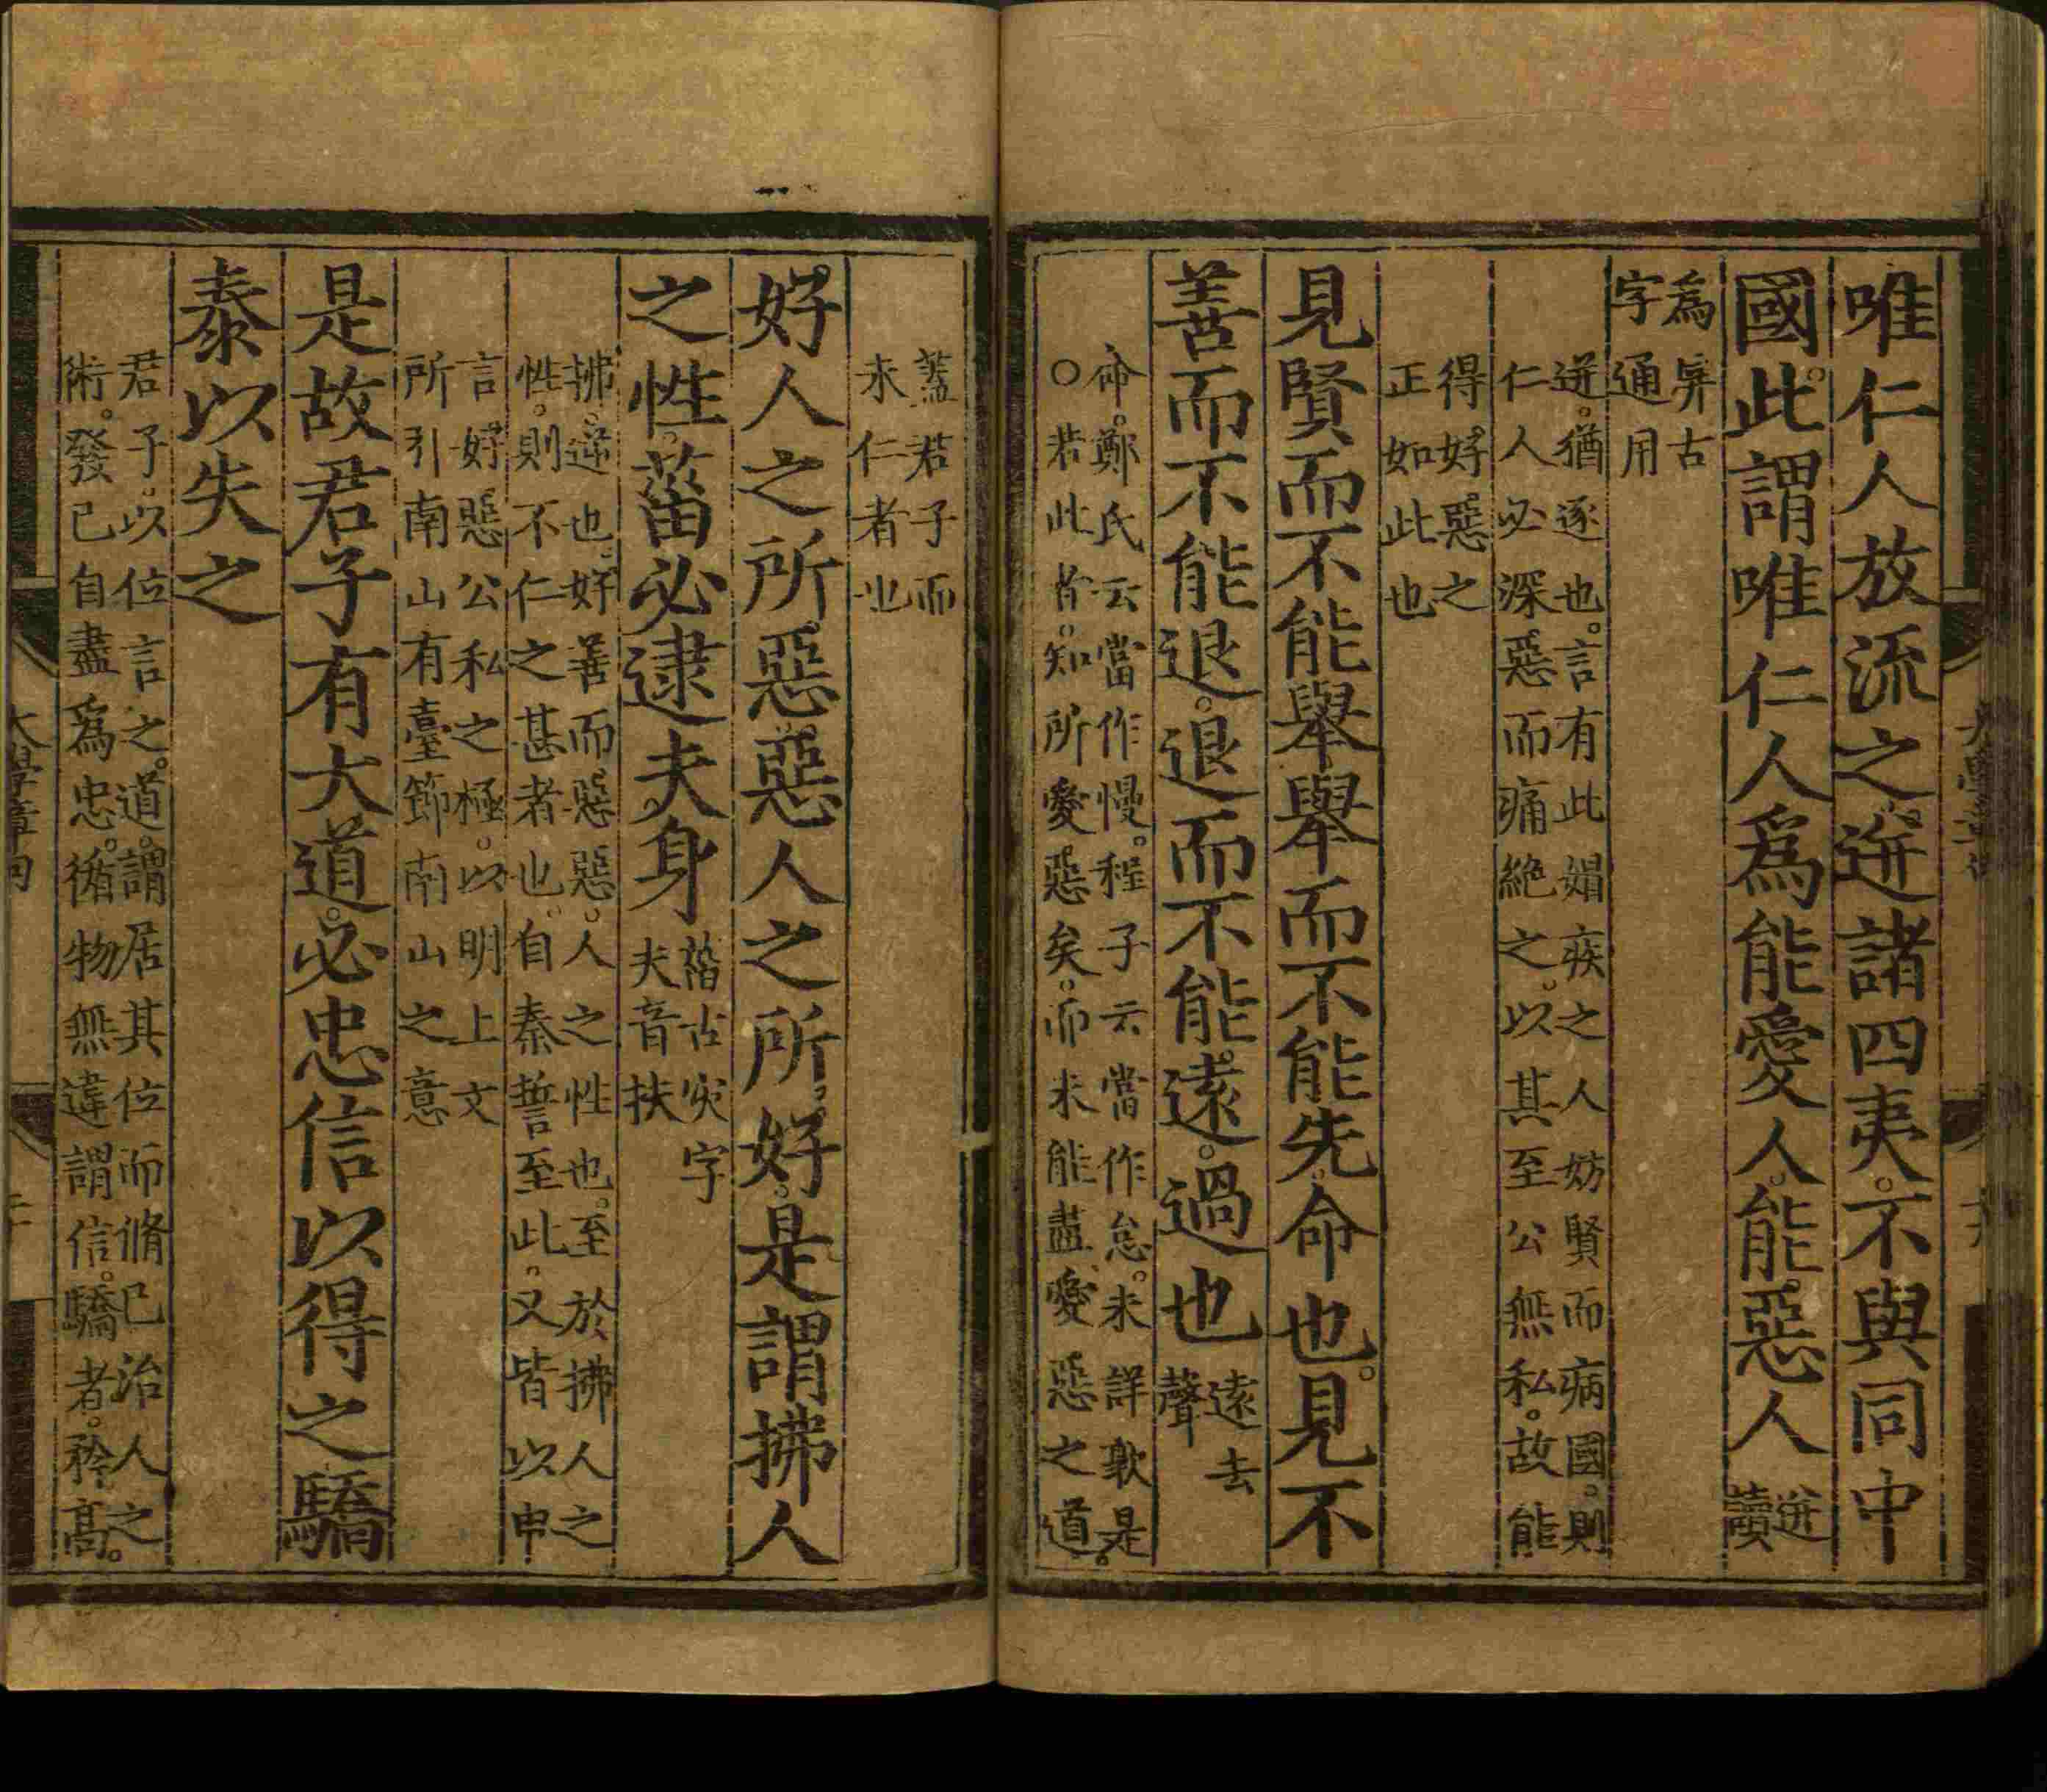 唯仁人放流之迸諸四夷。不與同中
國。此謂唯仁人爲能愛人。能惡人迸
讀
爲屏古
字通用
迸。猶逐也。言有此媢疾之人妨賢而病國。則
仁人必深惡而痛絶之。以其至公無私。故能
得好惡之
正如此也
見賢而不能舉舉而不能先。命也。見不
善而不能退。退而不能遠。過也遠去
聲
命。鄭氏云當作慢。程子云當作怠。未詳孰是。
○若此者。知所愛惡矣。而未能盡愛惡之道。
蓋君子而
未仁者也
好人之所惡惡人之所好。是謂拂人
之性。菑必逮夫身菑古災字
夫音扶
拂。逆也。好善而惡惡。人之性也。至於拂人之
性。則不仁之甚者也。自秦誓至此。又皆以申
言好惡公私之極。以明上文
所引南山有臺節南山之意
是故君子有大道。必忠信以得之驕
泰以失之
君子。以位言之。道。謂居其位而脩己治人之
術。發己自盡爲忠。循物無違謂信。驕者。矜高。